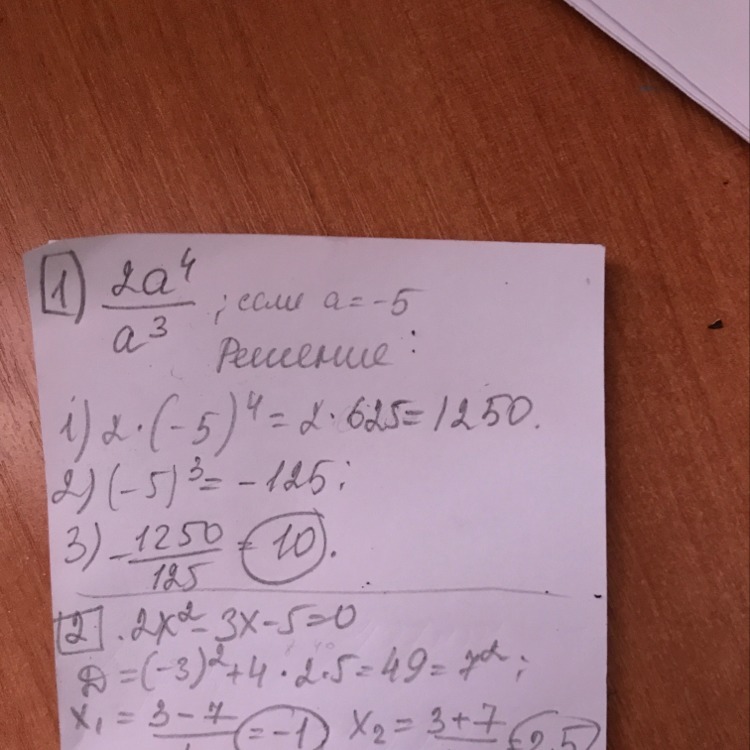 1) 2a⁴ / a³ ; если a = -5
Решение:
1) 2·(-5)⁴ = 2·625 = 1250.
2) (-5)³ = -125;
3) -1250/125 = -10.
2. 2x² - 3x - 5 = 0
D = (-3)² + 4·2·5 = 49 = 7²;
x₁ = 3-7/ = -1 x₂ = 3+7/ = 2,5